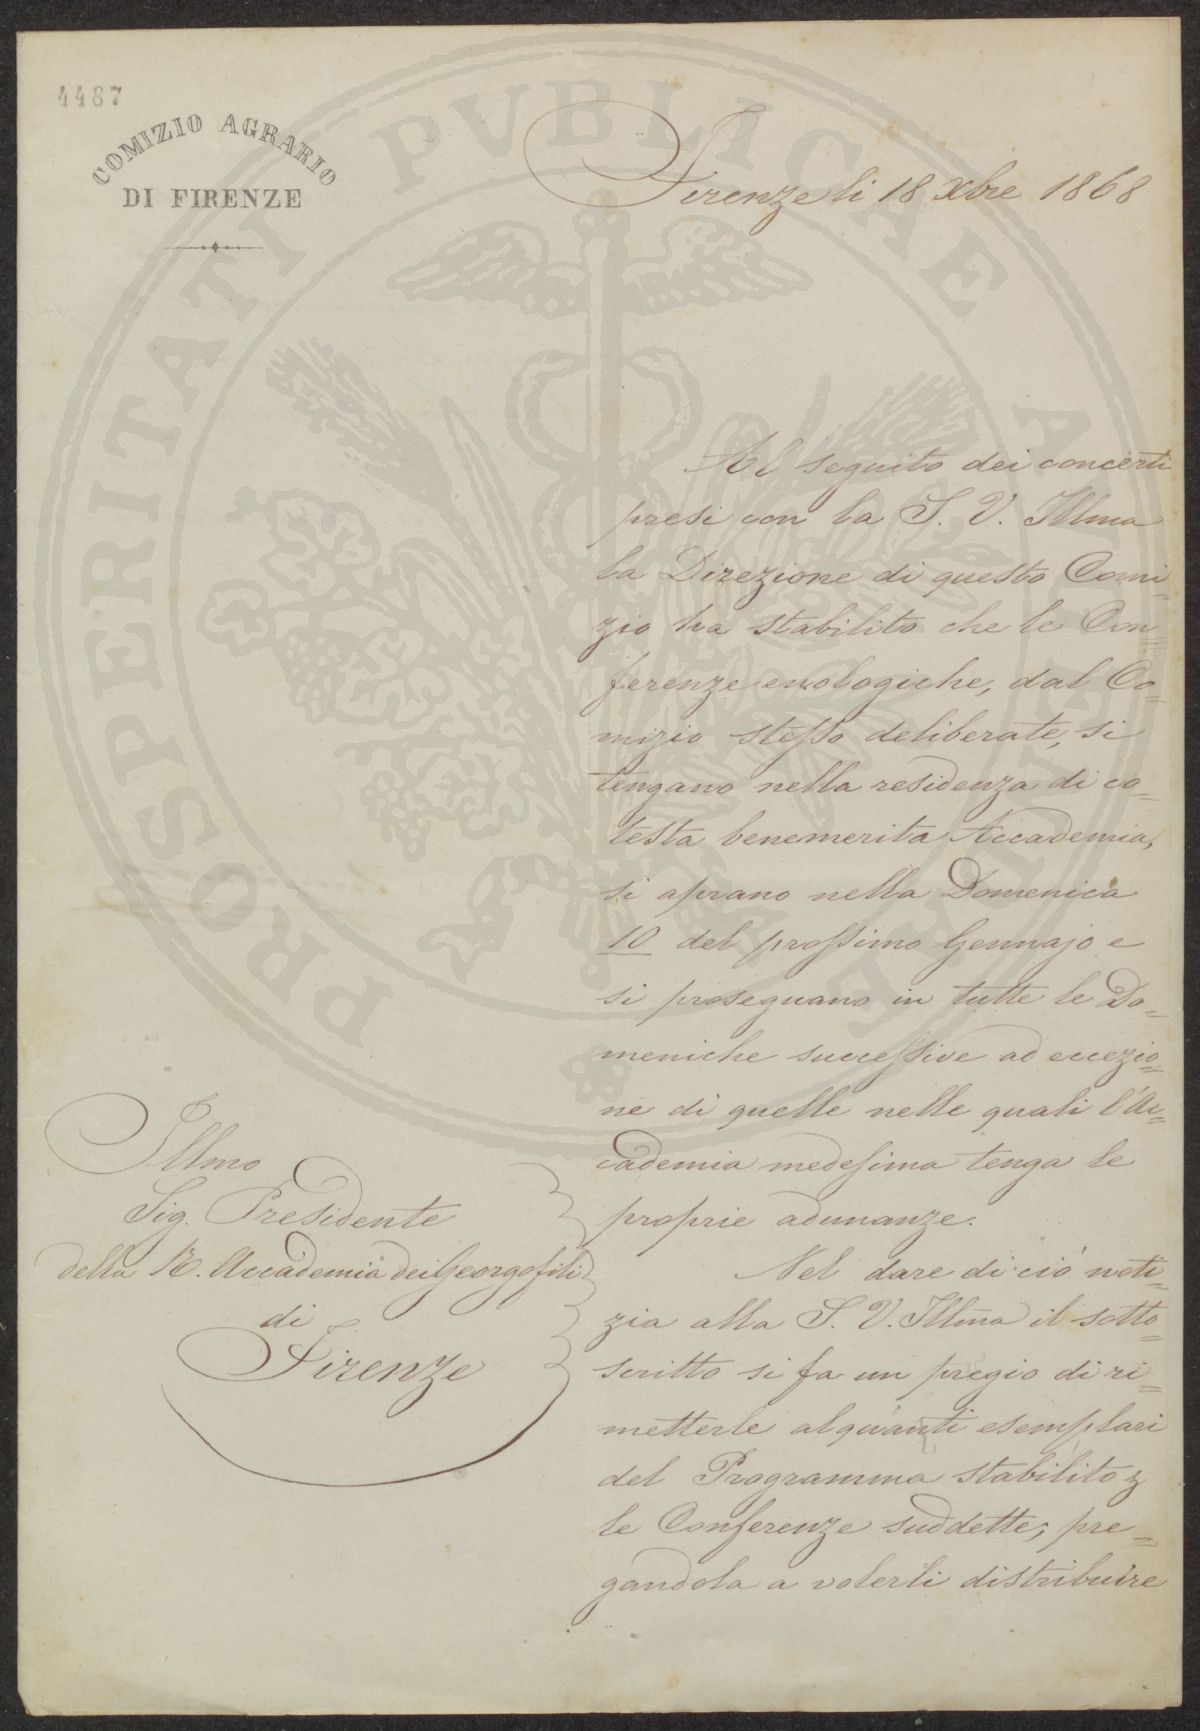 4487
COMIZIO AGRARIO
DI FIRENZE
PROSPERITATI PVBLICAE AVGENDAE
Firenze li 18 Xbre 1868
Al seguito dei concerti
presi con la S. V. Illma
la Direzione di questo Comi=
zio ha stabilito che le Con=
ferenze enologiche, dal Co=
mizio stesso deliberate, si
tengano nella residenza di co=
testa benemerita Accademia,
si aprano nella Domenica
10 del prossimo Gennajo e
si proseguano in tutte le Do=
meniche successive ad eccezio=
ne di quelle nelle quali l'Ac=
cademia medesima tenga le
proprie adunanze.
Nel dare di ciò noti=
zia alla S. V. Illma il sotto=
scritto si fa un pregio di ri=
metterle alquanti esemplari
del Programma stabilito
le Conferenze suddette; pre=
gandola a volerli distribuire
Illmo
Sig. Presidente
della R. Accademia dei Georgofili
di
Firenze